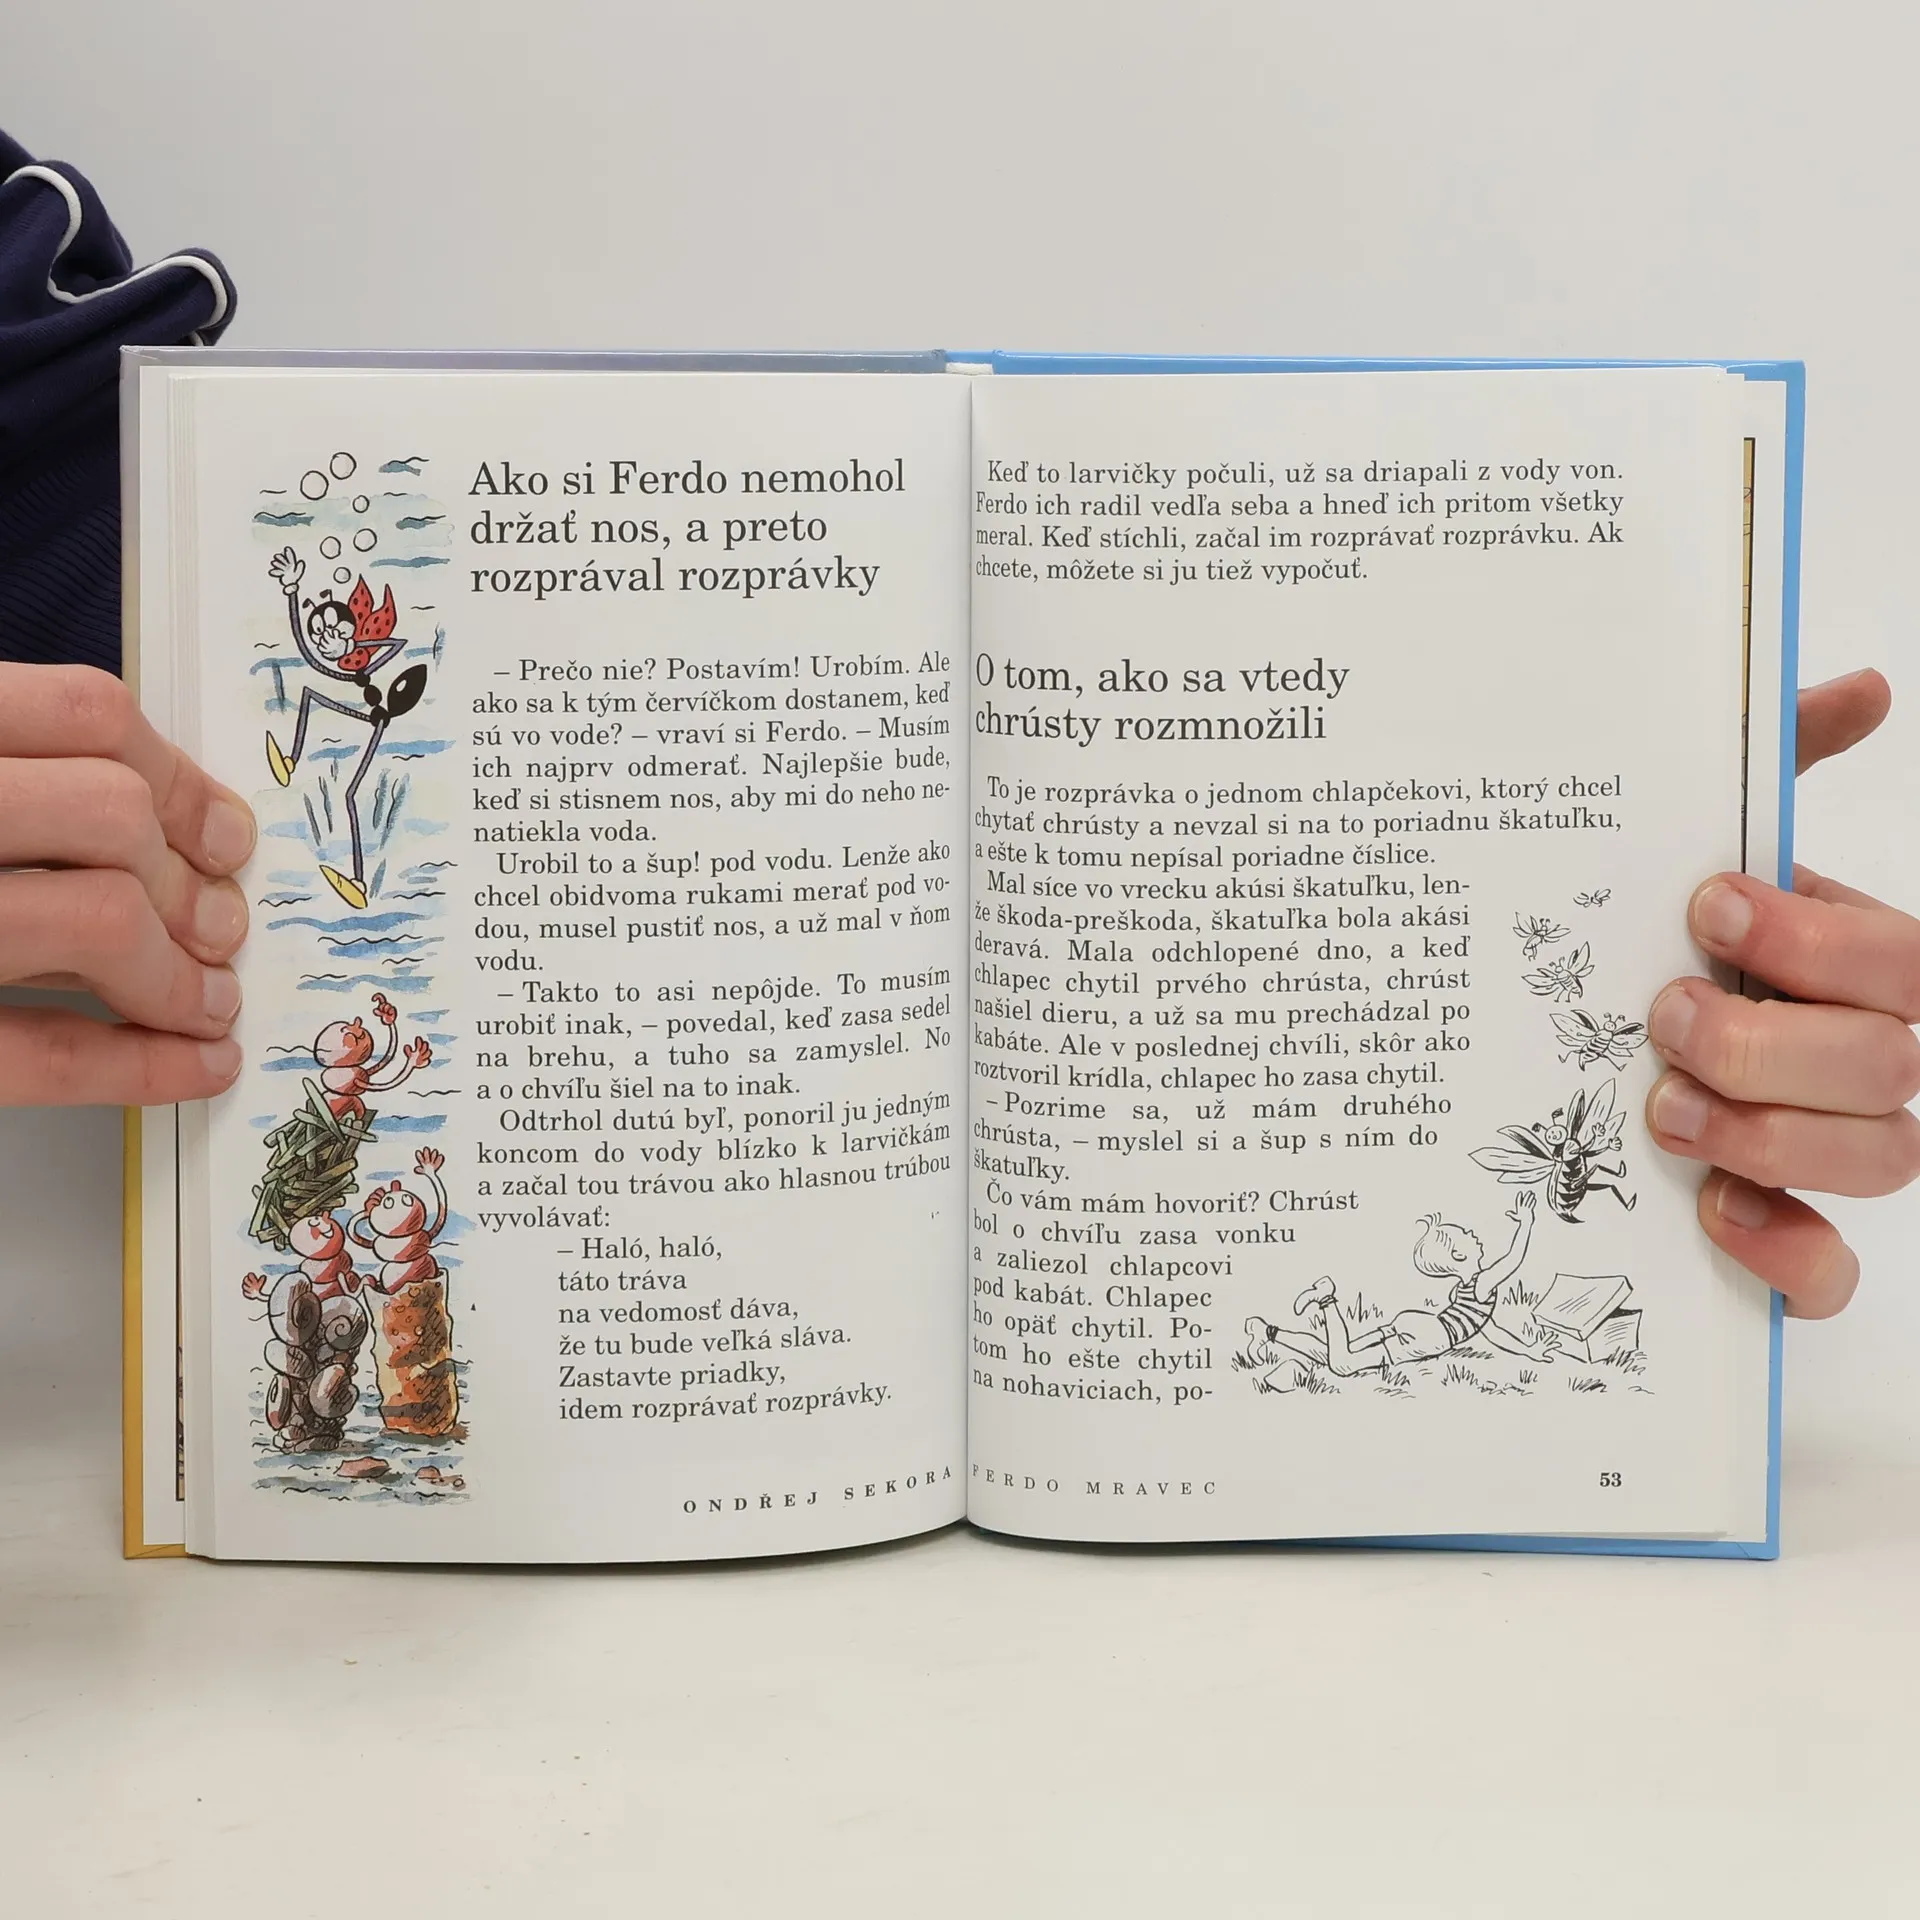 Ako si Ferdo nemohol
držať nos, a preto
rozprával rozprávky
– Prečo nie? Postavím! Urobím. Ale
ako sa k tým červíčkom dostanem, keď
sú vo vode? – vraví si Ferdo. – Musím
ich najprv odmerať. Najlepšie bude,
keď si stisnem nos, aby mi do neho ne-
natiekla voda.
Urobil to a šup! pod vodu. Lenže ako
chcel obidvoma rukami merať pod vo-
dou, musel pustiť nos, a už mal v ňom
vodu.
– Takto to asi nepôjde. To musím
urobiť inak, – povedal, keď zasa sedel
na brehu, a tuho sa zamyslel. No
a o chvíľu šiel na to inak.
Odtrhol dutú byľ, ponoril ju jedným
koncom do vody blízko k larvičkám
a začal tou trávou ako hlasnou trúbou
vyvolávať:
– Haló, haló,
táto tráva
na vedomosť dáva,
že tu bude veľká sláva.
Zastavte priadky,
idem rozprávať rozprávky.
ONDŘEJ SEKORA
Keď to larvičky počuli, už sa driapali z vody von.
Ferdo ich radil vedľa seba a hneď ich pritom všetky
meral. Keď stíchli, začal im rozprávať rozprávku. Ak
chcete, môžete si ju tiež vypočuť.
O tom, ako sa vtedy
chrústy rozmnožili
To je rozprávka o jednom chlapčekovi, ktorý chcel
chytať chrústy a nevzal si na to poriadnu škatuľku,
a ešte k tomu nepísal poriadne číslice.
Mal síce vo vrecku akúsi škatuľku, len-
že škoda-preškoda, škatuľka bola akási
deravá. Mala odchlopené dno, a keď
chlapec chytil prvého chrústa, chrúst
našiel dieru, a už sa mu prechádzal po
kabáte. Ale v poslednej chvíli, skôr ako
roztvoril krídla, chlapec ho zasa chytil.
– Pozrime sa, už mám druhého
chrústa, – myslel si a šup s ním do
škatuľky.
Čo vám mám hovoriť? Chrúst
bol o chvíľu zasa vonku
a zaliezol chlapcovi
pod kabát. Chlapec
ho opäť chytil. Po-
tom ho ešte chytil
na nohaviciach, po-
FERDO MRAVEC
53